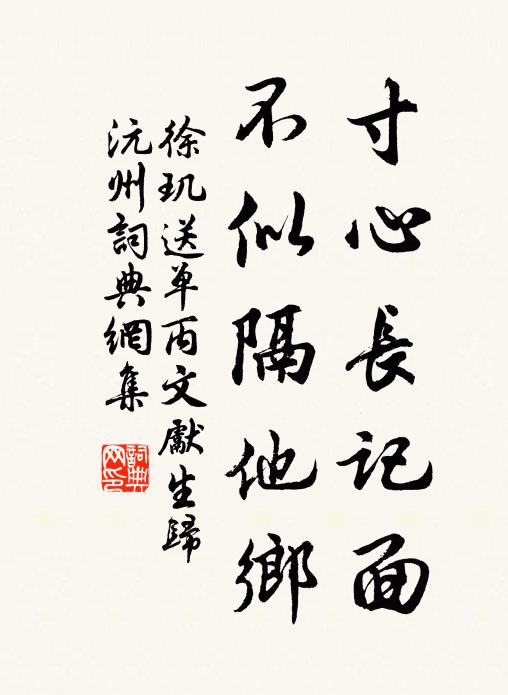 寸心長記面
不似隔他鄉
徐玑送单丙文獻生歸
沅州詞典網集
詞典
网印